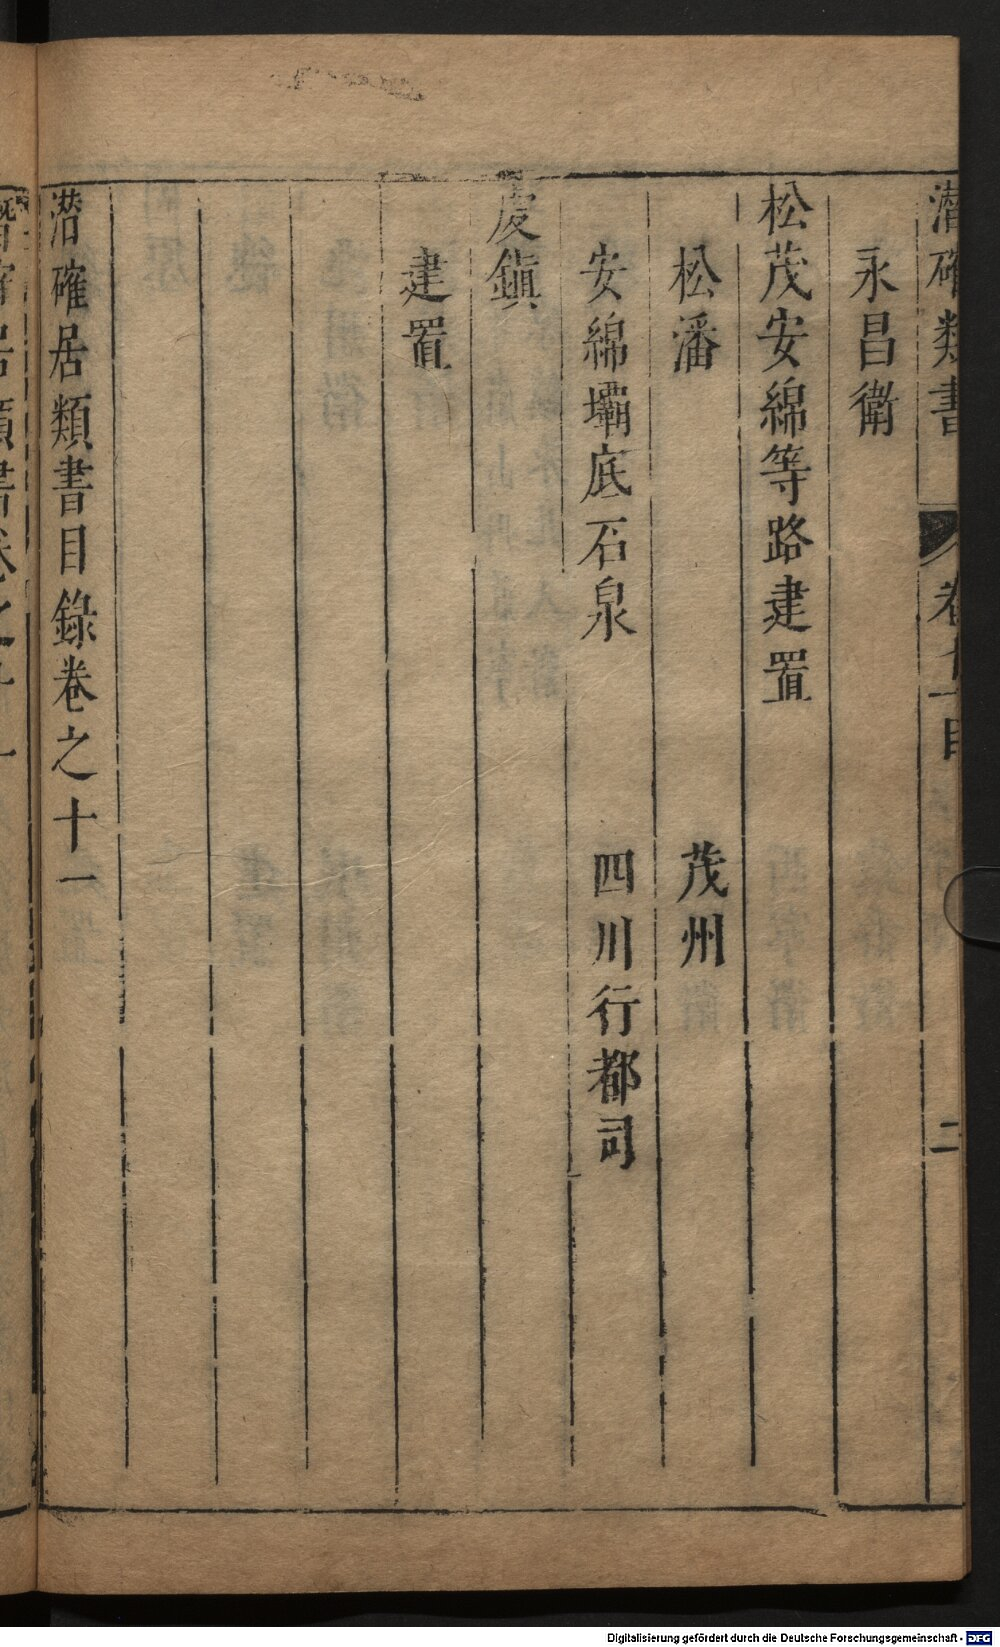 潜確類書 卷十一目 二
永昌衛
松茂安綿等路建置
松潘 茂州
安綿壩底石泉 四川行都司
虔鎮
建置
潜確居類書目錄卷之十一
Digitalisierung gefördert durch die Deutsche Forschungsgemeinschaft - DFG